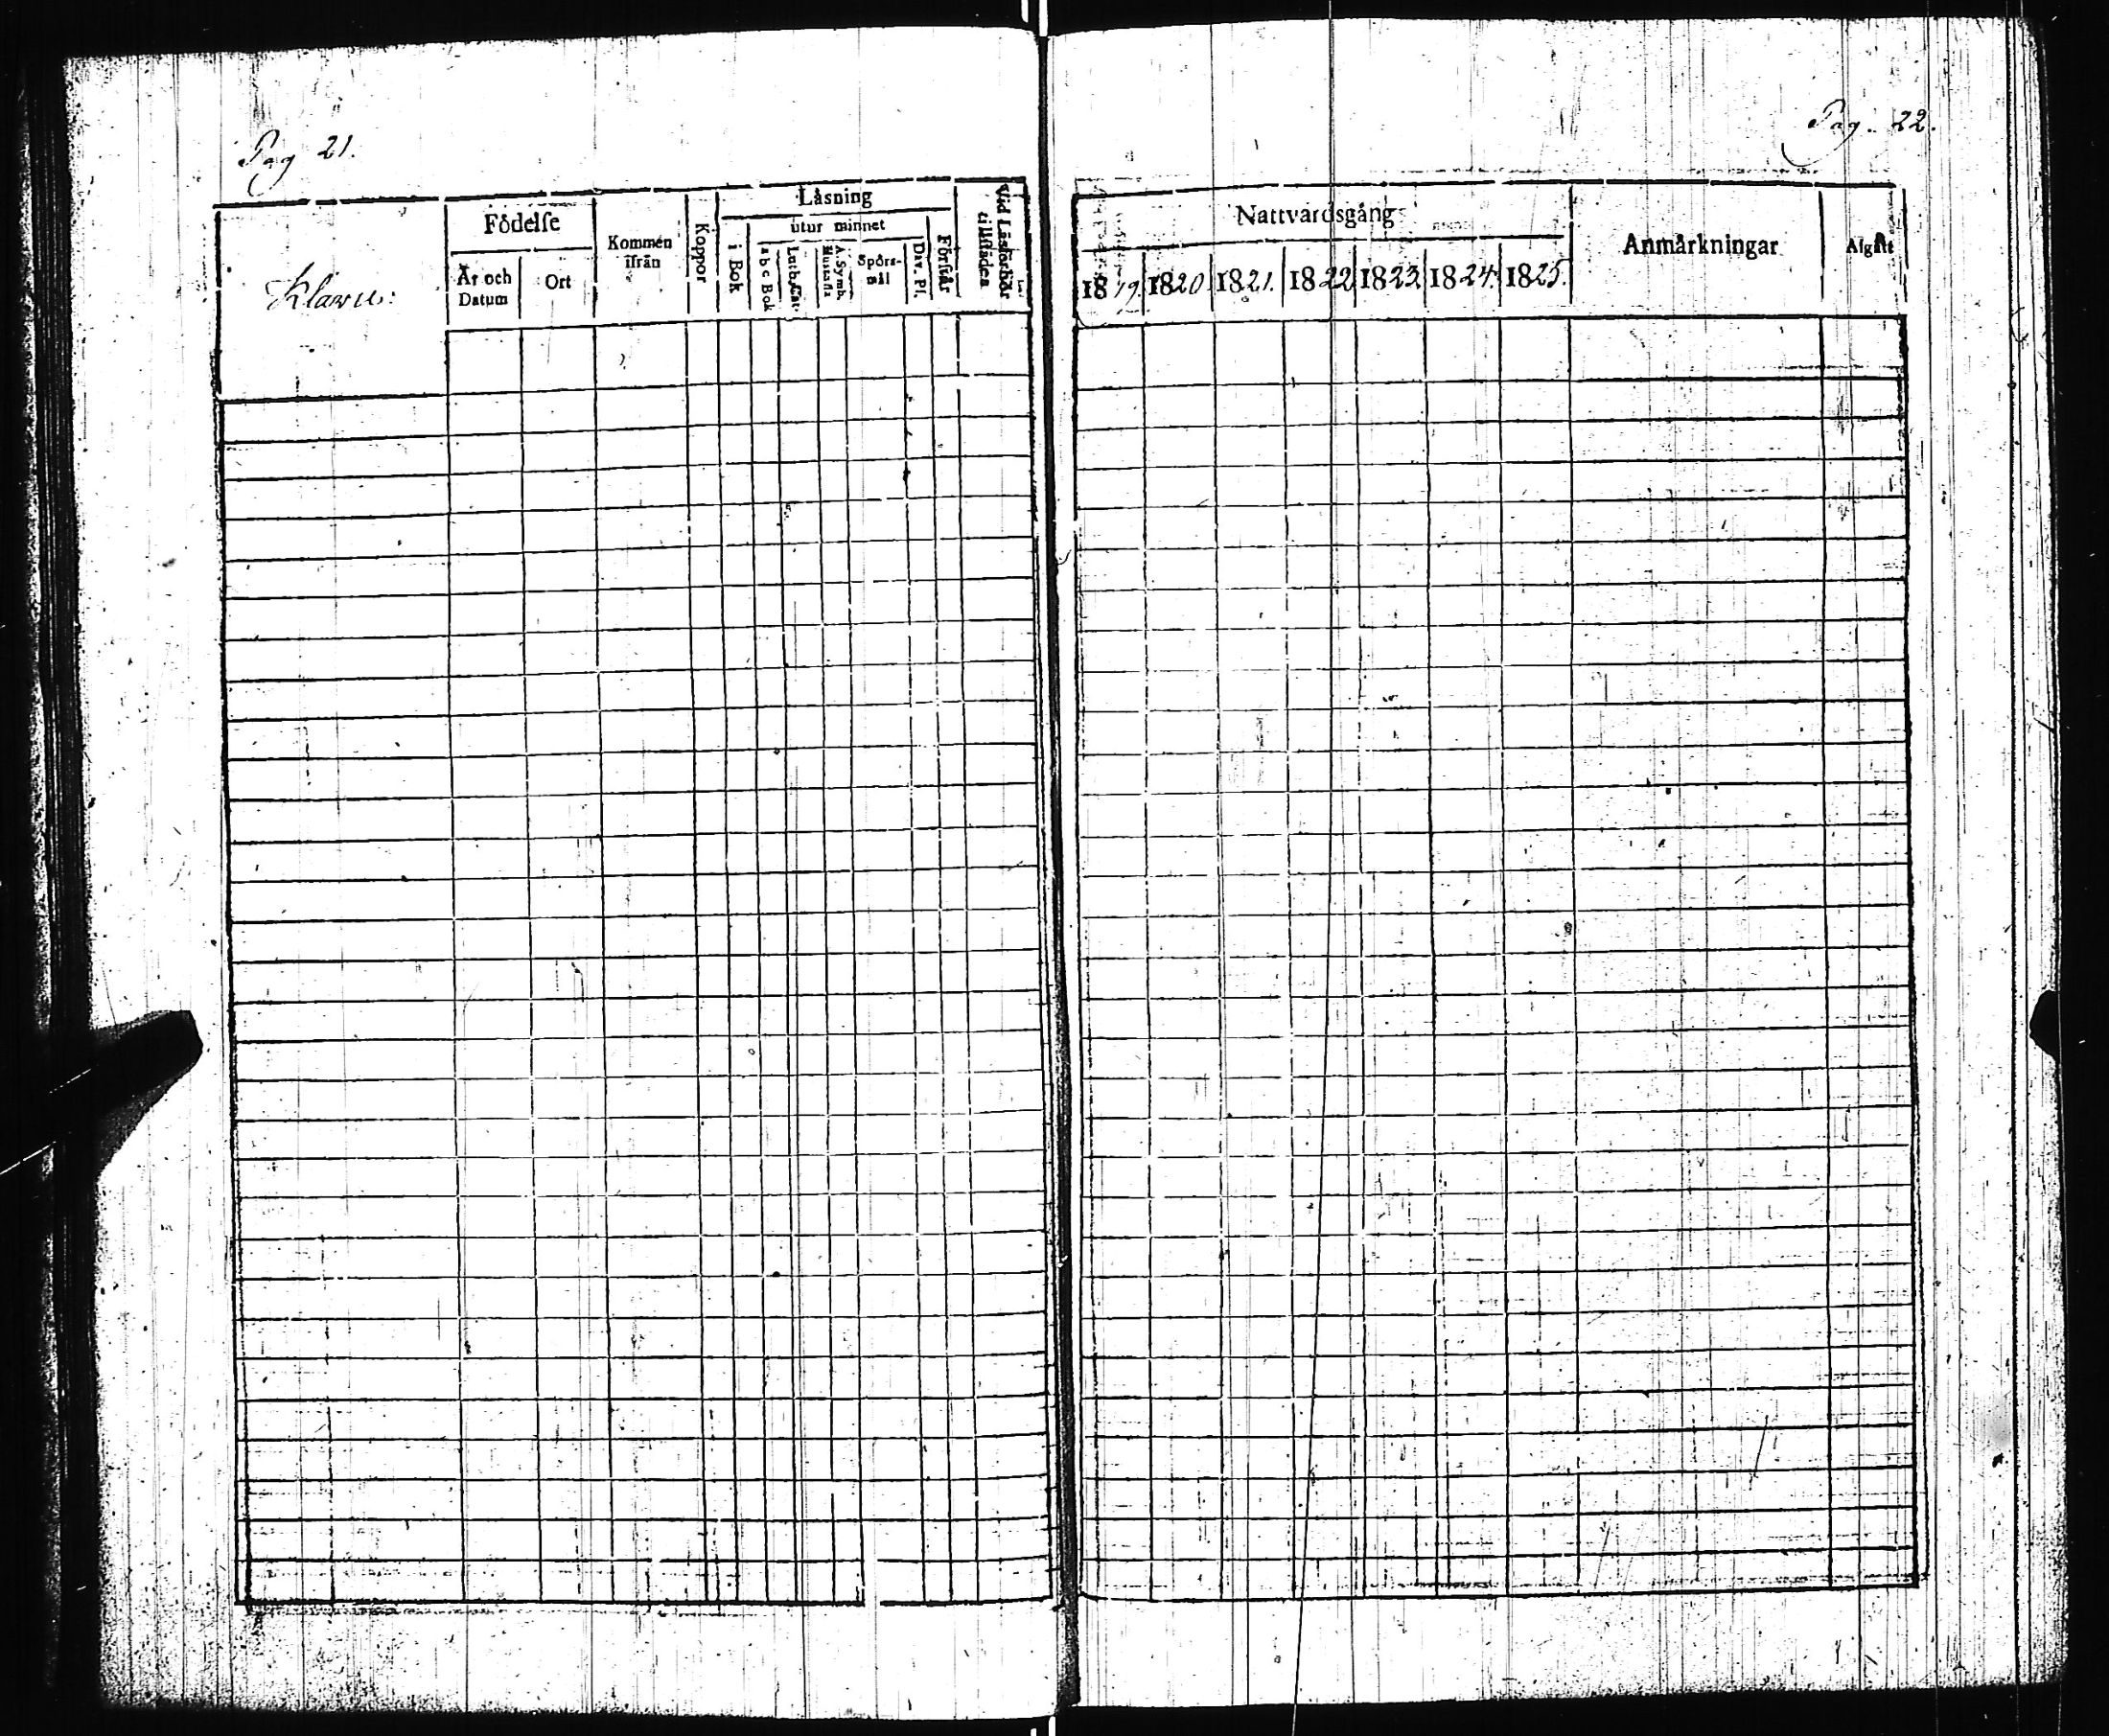 Pag 21.
Klavu:
Födelſe
År och Datum
Ort
Kommen ifrån
Koppor
Läsning
i Bok
utur minnet
a b c Bok
Luth. Cat.
A. Symb. Hustafla
Spörs-mål
Dav. Pſ.
Förſtår
Vid Läsförhör tillſtädes
Pag. 22.
Nattvardsgång
1819.
1820
1821.
1822
1823
1824.
1825.
Anmärkningar
Afgått